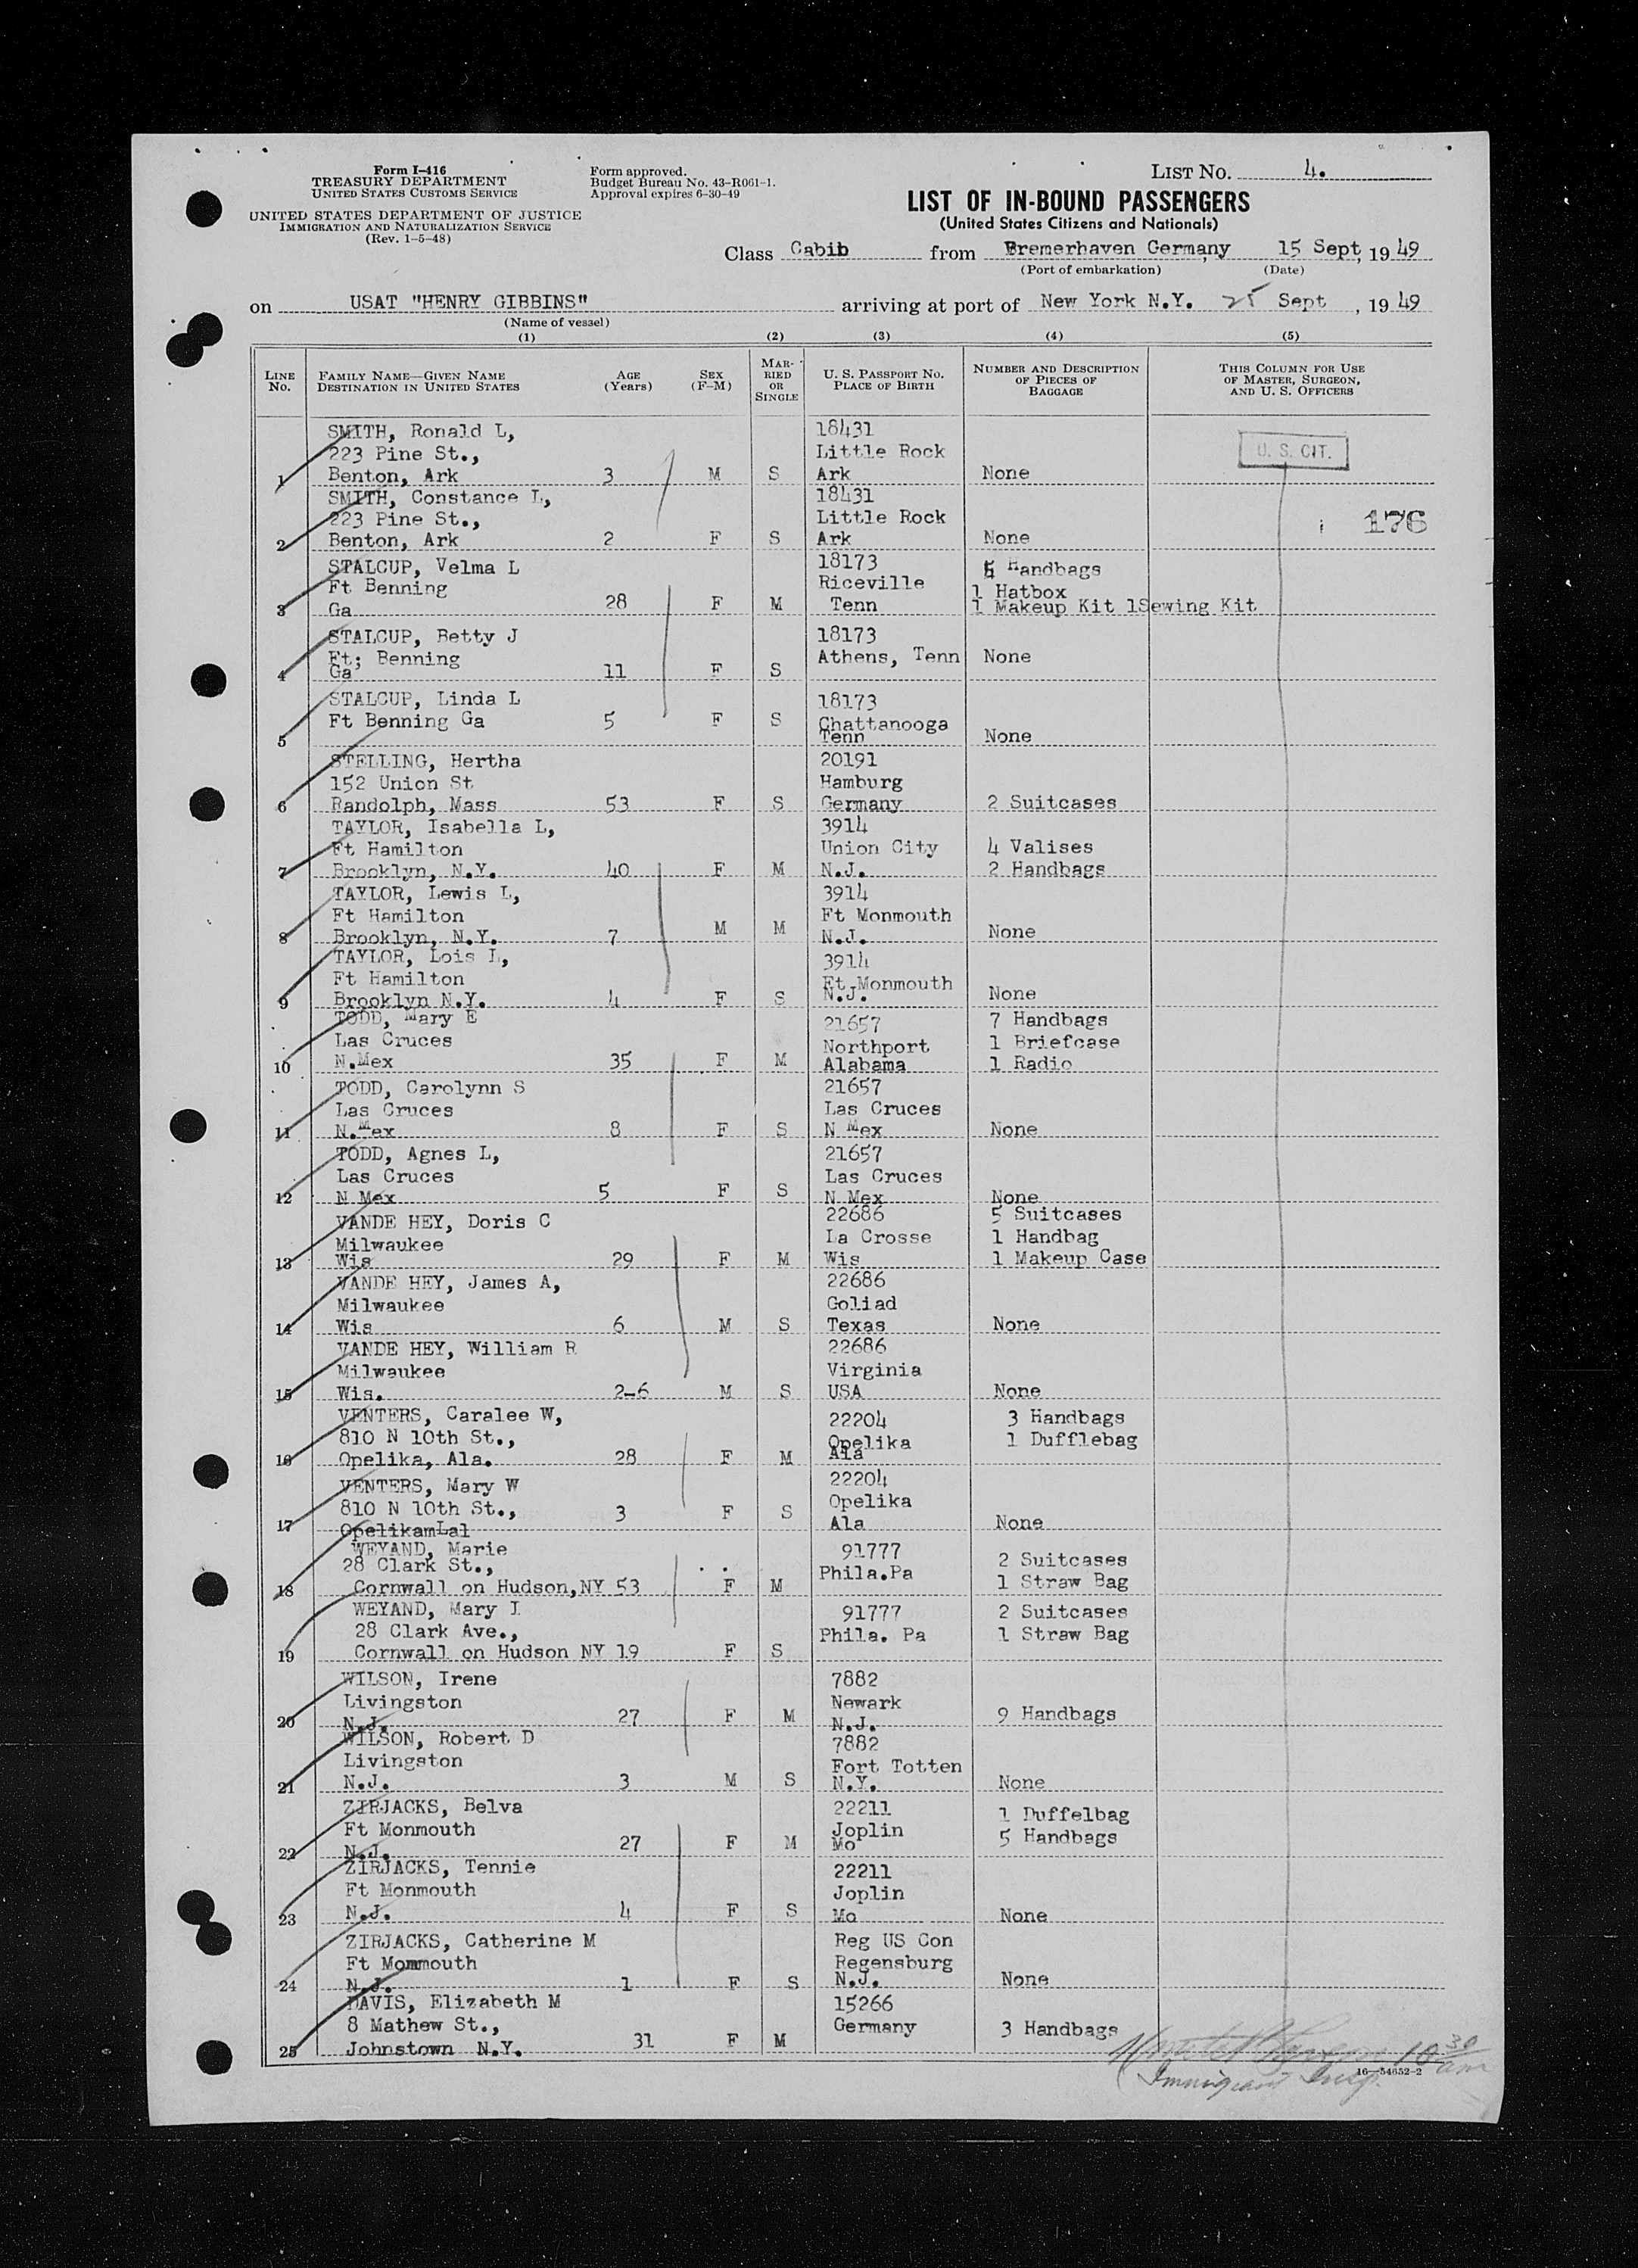 Form I-416
TREASURY DEPARTMENT
UNITED STATES CUSTOMS SERVICE
UNITED STATES DEPARTMENT OF JUSTICE
IMMIGRATION AND NATURALIZATION SERVICE
(Rev. 1-5-48)
Form approved.
Budget Bureau No. 43-R061-1.
Approval expires 6-30-49
LIST NO. 4.
LIST OF IN-BOUND PASSENGERS
(United States Citizens and Nationals)
Class Cabib from Bremerhaven Germany, 15 Sept, 19 49
(Port of embarkation) (Date)
on USAT "HENRY GIBBINS" arriving at port of New York N.Y. 25 Sept, 19 49
(Name of vessel)
(1) (2) (3) (4) (5)
LINE No. FAMILY NAME—GIVEN NAME DESTINATION IN UNITED STATES AGE (Years) SEX (F-M) MARRIED OR SINGLE U. S. PASSPORT NO. PLACE OF BIRTH NUMBER AND DESCRIPTION OF PIECES OF BAGGAGE THIS COLUMN FOR USE OF MASTER, SURGEON, AND U. S. OFFICERS
SMITH, Ronald L, 18431
223 Pine St., Little Rock U. S. CIT.
1 Benton, Ark 3 M S Ark None
SMITH, Constance L, 18431
223 Pine St., Little Rock 176
2 Benton, Ark 2 F S Ark None
STALCUP, Velma L 18173 Handbags
Ft Benning Riceville 1 Hatbox
3 Ga 28 F M Tenn 1 Makeup Kit 1Sewing Kit
STALCUP, Betty J 18173
Ft; Benning Athens, Tenn None
4 Ga 11 F S
STALCUP, Linda L 18173
Ft Benning Ga 5 F S Chattanooga
5 Tenn None
STELLING, Hertha 20191
152 Union St Hamburg
6 Randolph, Mass 53 F S Germany 2 Suitcases
TAYLOR, Isabella L, 3914
Ft Hamilton Union City 4 Valises
7 Brooklyn, N.Y. 40 F M N.J. 2 Handbags
TAYLOR, Lewis L, 3914
Ft Hamilton Ft Monmouth
8 Brooklyn, N.Y. 7 M M N.J. None
TAYLOR, Lois L, 3914
Ft Hamilton Ft Monmouth
9 Brooklyn N.Y. 4 F S N.J. None
TODD, Mary E 21657 7 Handbags
Las Cruces Northport 1 Briefcase
10 N.Mex 35 F M Alabama 1 Radio
TODD, Carolynn S 21657
Las Cruces Las Cruces
11 N.Mex 8 F S N Mex None
TODD, Agnes L, 21657
Las Cruces Las Cruces
12 N Mex 5 F S N Mex None
VANDE HEY, Doris C 22686 5 Suitcases
Milwaukee La Crosse 1 Handbag
13 Wis 29 F M Wis 1 Makeup Case
VANDE HEY, James A, 22686
Milwaukee Goliad
14 Wis 6 M S Texas None
VANDE HEY, William R 22686
Milwaukee Virginia
15 Wis. 2-6 M S USA None
VENTERS, Caralee W, 22204 3 Handbags
810 N 10th St., Opelika 1 Dufflebag
16 Opelika, Ala. 28 F M Ala
VENTERS, Mary W 22204
810 N 10th St., 3 F S Opelika
17 OpelikamLal Ala None
WEYAND, Marie 91777 2 Suitcases
28 Clark St., Phila.Pa
18 Cornwall on Hudson,NY 53 F M 1 Straw Bag
WEYAND, Mary I 91777 2 Suitcases
28 Clark Ave., Phila. Pa 1 Straw Bag
19 Cornwall on Hudson NY 19 F S
WILSON, Irene 7882
Livingston Newark
20 N.J. 27 F M N.J. 9 Handbags
WILSON, Robert D 7882
Livingston Fort Totten
21 N.J. 3 M S N.Y. None
ZIRJACKS, Belva 22211 1 Duffelbag
Ft Monmouth Joplin 5 Handbags
22 N.J. 27 F M Mo
ZIRJACKS, Tennie 22211
Ft Monmouth Joplin
23 N.J. 4 F S Mo None
ZIRJACKS, Catherine M Reg US Con
Ft Monmouth Regensburg
24 N.J. 1 F S N.J. None
DAVIS, Elizabeth M 15266
8 Mathew St., Germany 3 Handbags
25 Johnstown N.Y. 31 F M
10 30 am
16-54652-2
Immigrant Insp.